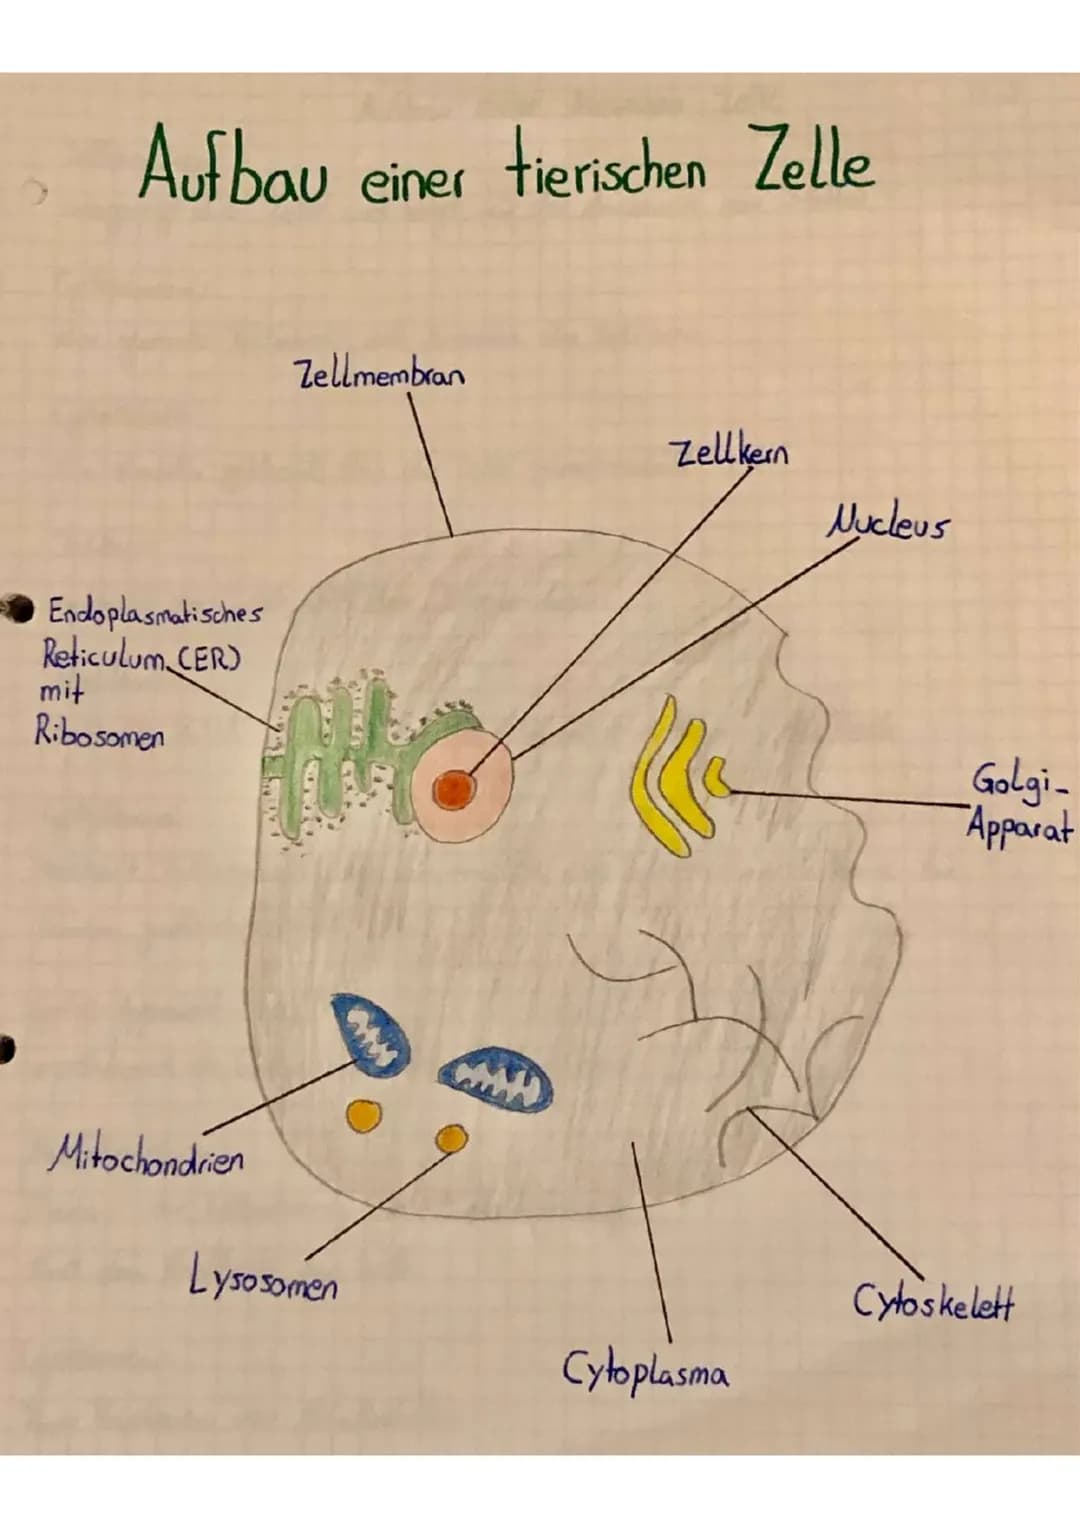 Aufbau einer tierischen Zelle
Zellmembran
Zellkern
Nucleus
Endoplasmatisches
Reticulum (ER)
mit
Ribosomen
Golgi-
Apparat
Mitochondrien
Lysosomen
Cytoskelett
Cytoplasma